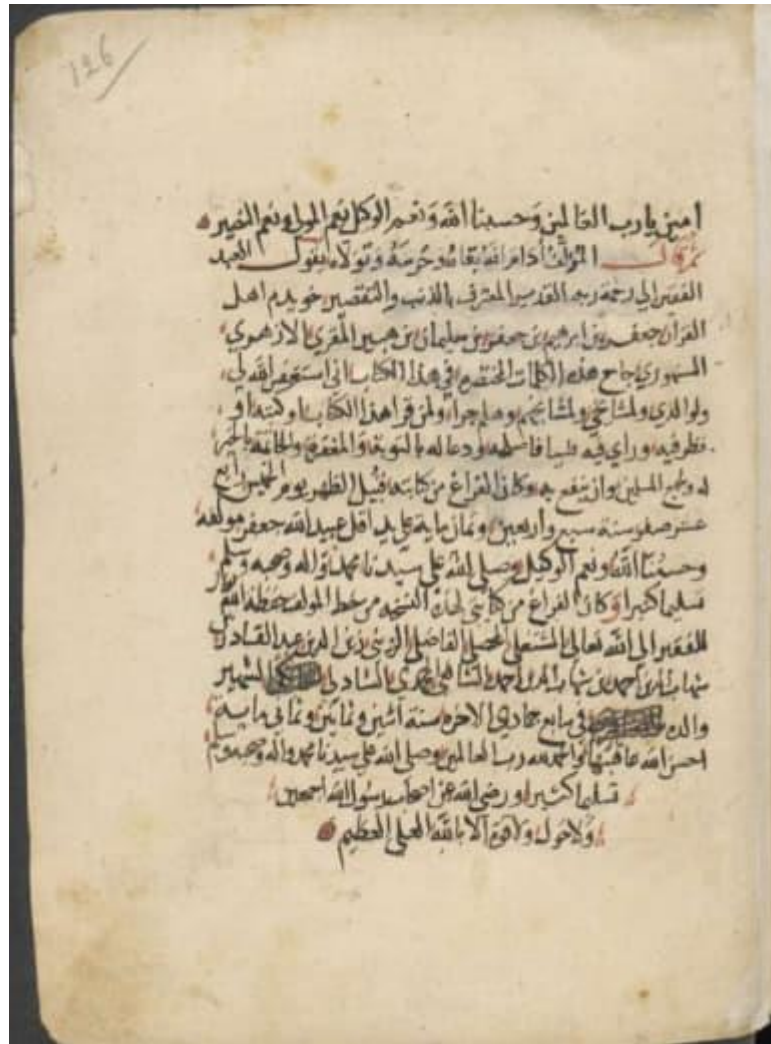 126
امين يارب العالمين وحسبنا الله ونعم الوكيل نعم المولى ونعم النصير
ثم قال المؤلف أدام الله بقاه وحرسه وتولاه يقول العبد
الفقير الى رحمة ربه القدير المعترف بالذنب والتقصير خويدم اهل
القران جعفر بن ابرهيم بن جعفر بن سليمان بن زهير المقري الازهري
السنهوري جامع هذه الكلمات المختصره في هذا الكتاب اني استغفر الله لي
ولوالدي ولمشايخي ولمشايخهم وهلم جرا ولمن قرا هذا الكتاب او كتبه او
نظر فيه وراي فيه فاصلحه ودعا له بالتوبة والمغفرة والخاتمة بالخير
له ولجميع المسلمين وان ينفع به وكان الفراغ من كتابته قبيل الظهر يوم الخميس رابع
عشر صفر سنة سبع واربعين وثمان ماية على يد اقل عبيد الله جعفر مولفه
وحسبنا الله ونعم الوكيل وصلى الله على سيدنا محمد واله وصحبه وسلم
تسليما كثيرا وكان الفراغ من كتابتي لهذه النسخه من خط المولف حفظه الله
للفقير الى الله تعالى المشتغل المحصل الفاضل الزيني زين الدين عبد القادر
شهاب الدين احمد بن شهاب الدين احمد الشافعي الشادلي الشهير
والده في سابع جمادي الاخره سنة اثنين وثمانين وثماني ماية
احسن الله عاقبتها والحمد لله رب العالمين وصلى الله على سيدنا محمد واله وصحبه وسلم
تسليما كثيرا ورضي الله عن اصحاب رسول الله اجمعين
ولا حول ولا قوة الا بالله العلي العظيم